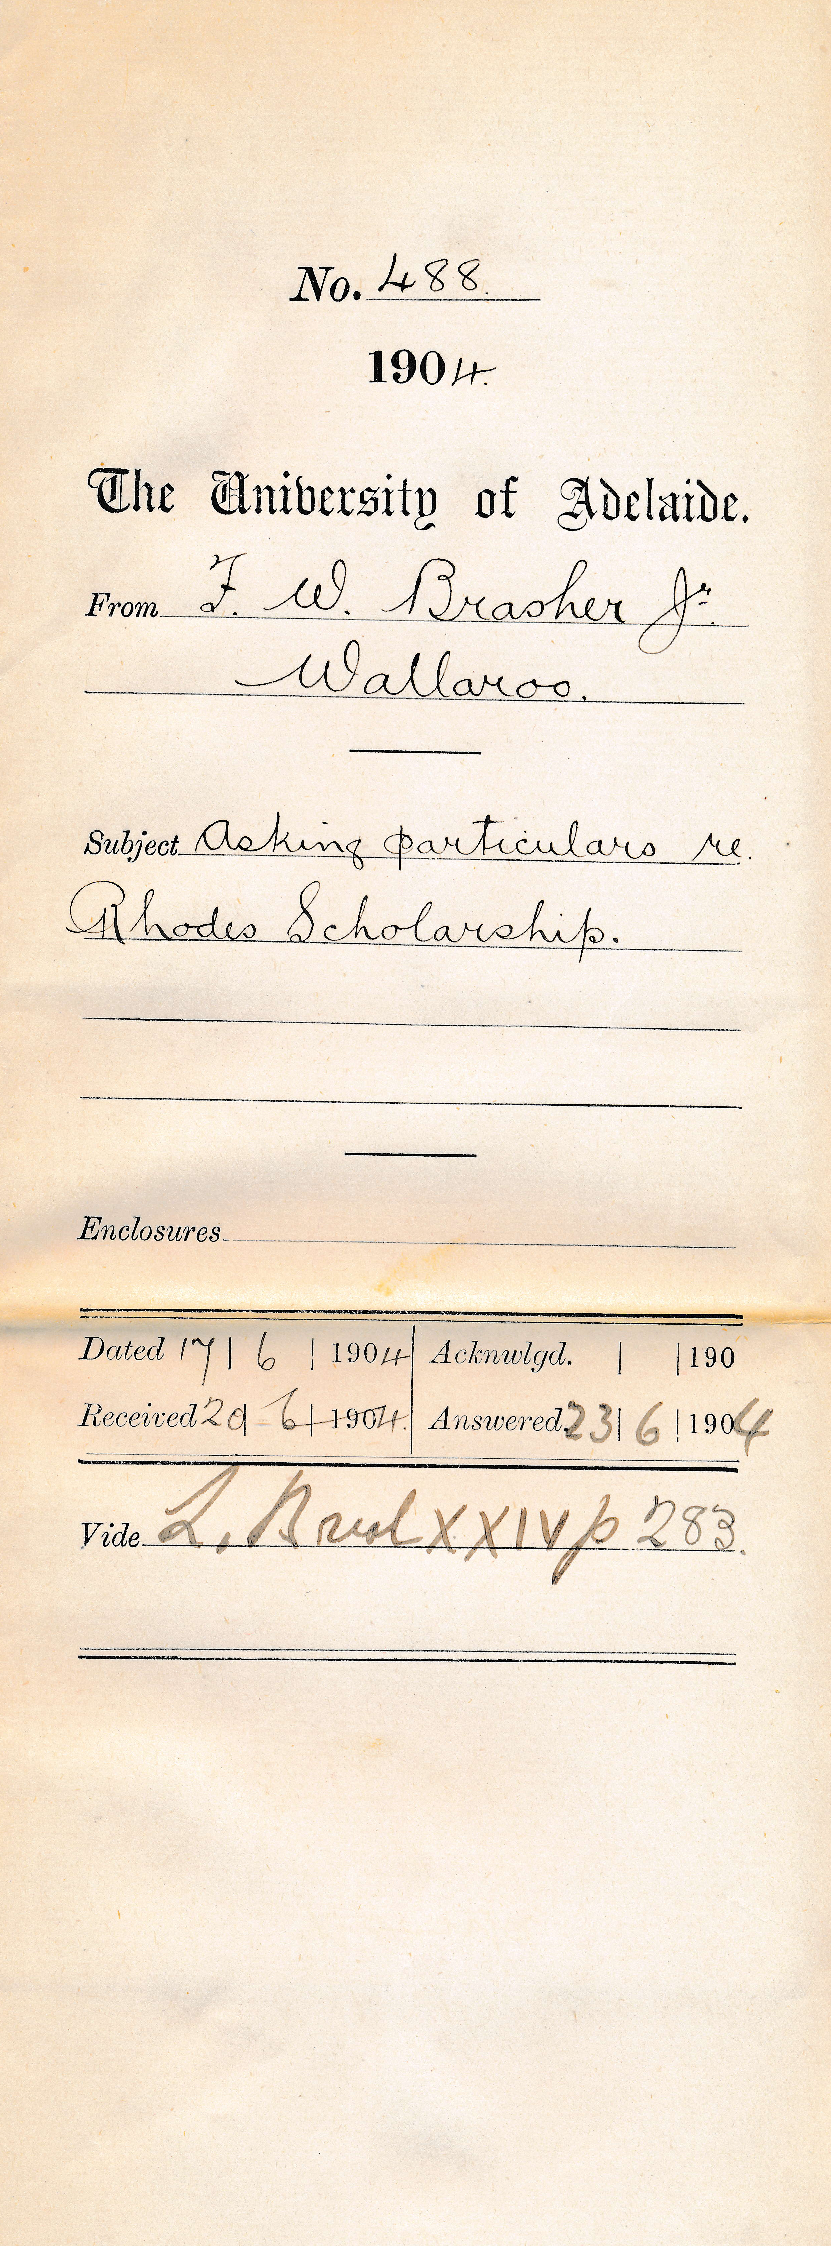 No. 488.
1904.
The University of Adelaide.
From F. W. Brasher Jr.
Wallaroo.
Subject Asking particulars re.
Rhodes Scholarship.
Enclosures
Dated 17 | 6 | 1904 Acknwlgd. | | 190
Received 20 | 6 | 1904. Answered 23 | 6 | 1904
Vide L. B vol XXIV p 283.